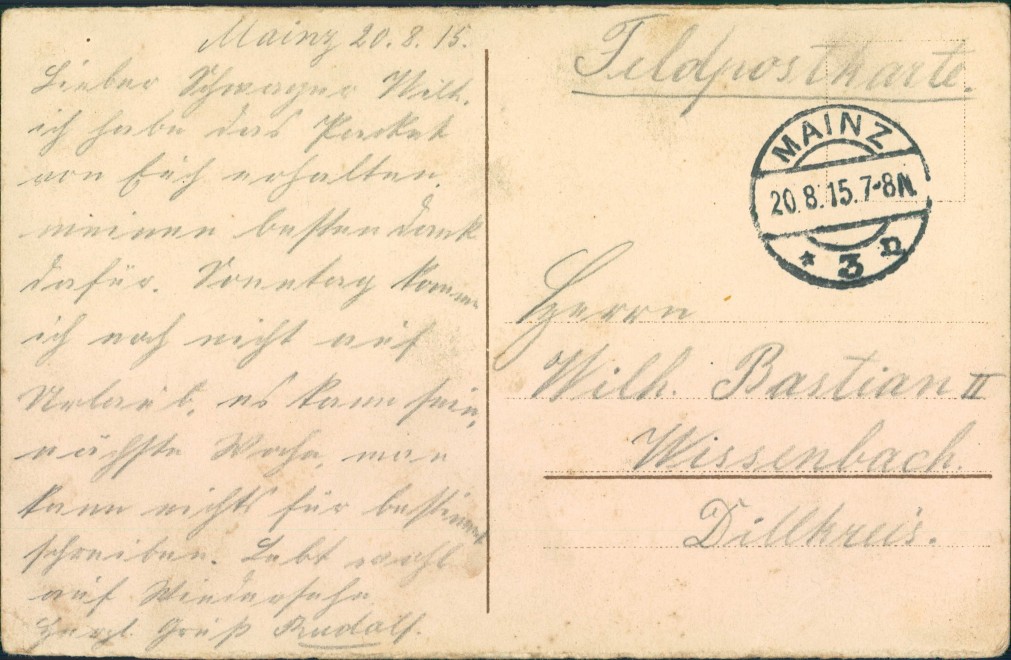 Mainz 20.8.15.
Lieber Schwager Wilh.
ich habe das Packet
von Euch erhalten,
meinen besten Dank
dafür. Sonntag komme
ich noch nicht auf
Urlaub, es kann sein,
nächste Woche, man
kann nichts für bestimmt
schreiben. Lebt wohl
auf Wiedersehn
Herzl. Gruß Rudolf.
Feldpostkarte.
MAINZ
20.8.15.7-8N.
* 3 n
Herrn
Wilh. Bastian II
Wissenbach.
Dillkreis.